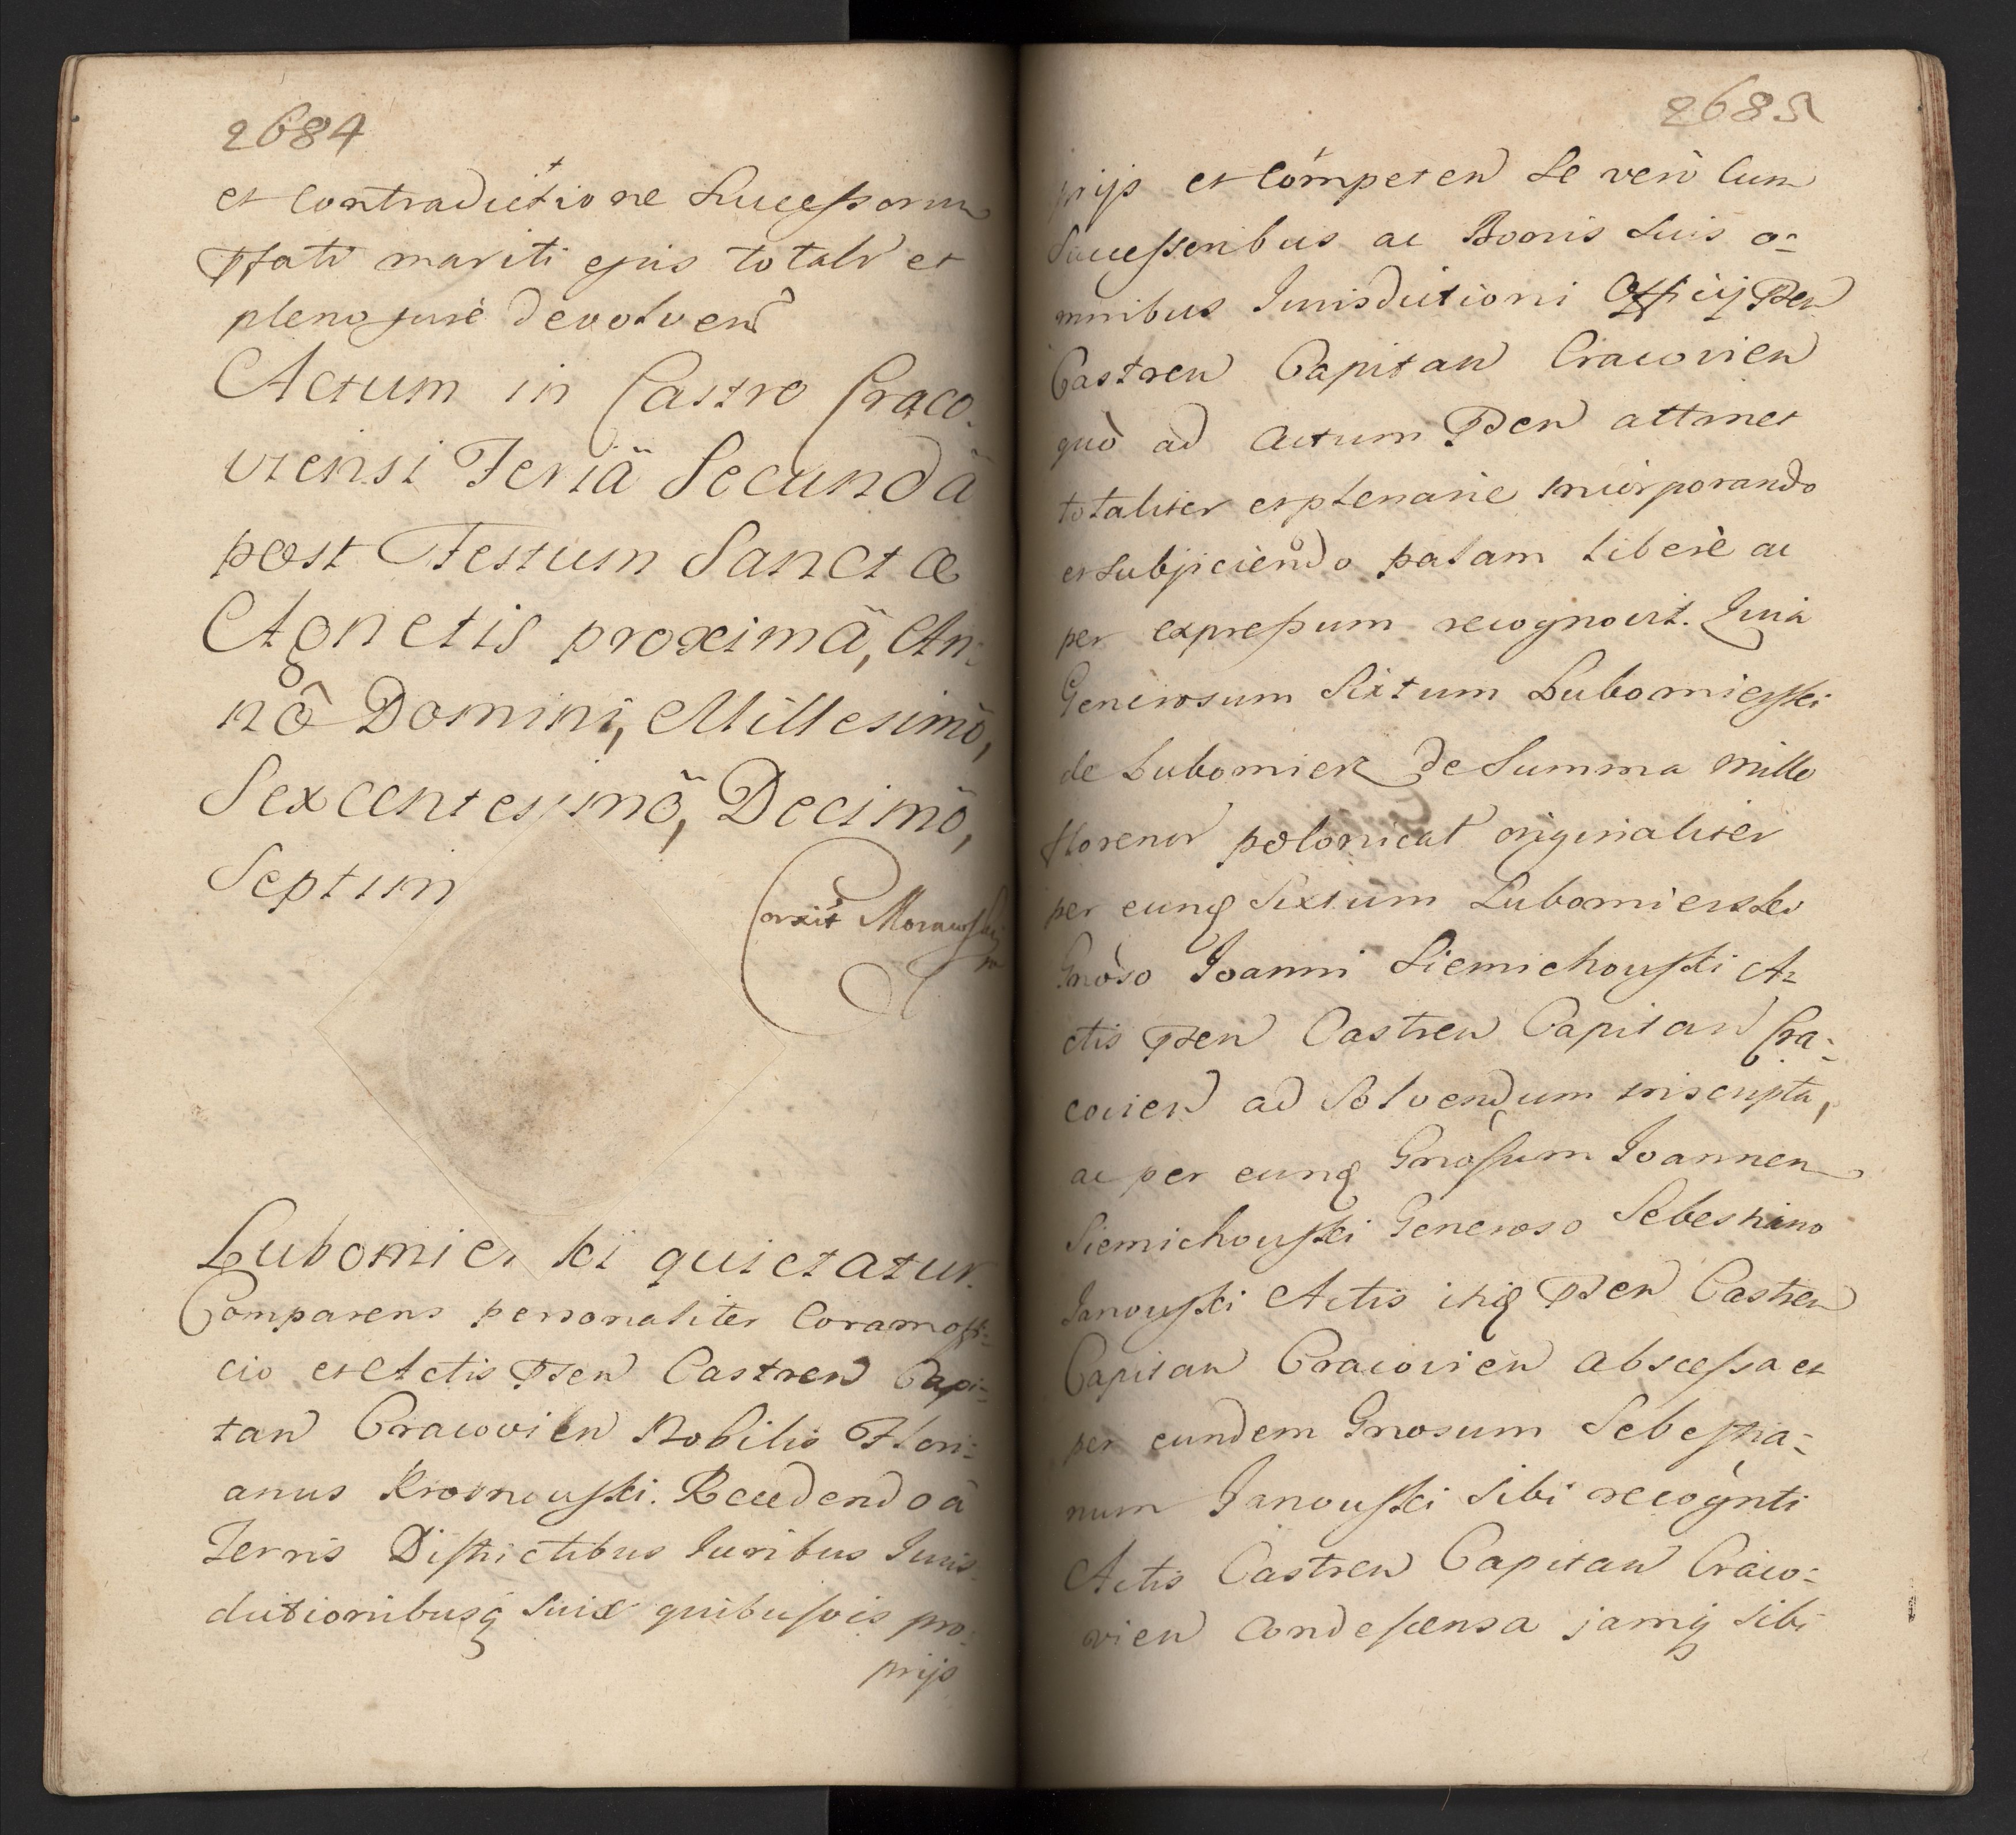 2684
et Contradictione Sucessorum
Pfati mariti ejus totalr et
pleno jure devolvend
Actum in Castro Craco-
viensi Feriâ Secundâ
post Festum Sanctæ
Agnetis proximâ, An-
nô Domini, Millesimô,
Sexcentesimô, Decimô,
Septim
Corxit Morawski
Lubomier ski quietatur.
Comparens personaliter Coram offi-
cio et Actis Psen Castren Capi-
tan Cracovien Nobilis Flori-
anus Krosnowski. Recedendo à
Terris Districtibus Juribus Juris-
dictionibusq suis quibusvis pro-
prijs
2685
prijs et Competen Se verò Cum
Sucessoribus ac Bonis Suis o-
mnibus Jurisdictioni Officij Psen
Castren Capitan Cracovien
quò ad Actum Psen attinet
totaliter et plenarie incorporando
et Subjiciendo palam liberè ac
per expressum recognovit. Quia
Generosum Sixtum Lubomierski
de Lubomierz de Summa mille
florenor polonical originaliter
per eunq Sixtum Lubomierski
Gnoso Joanni Siemichowski A-
ctis Psen Castren Capitan Cra-
covien ad Solvendum inscripta,
ac per eunq Gnosum Joannem
Siemichowski Generoso Sebestiano
Janowski Actis itiq Psen Castren
Capitan Cracovien abscessa et
per eundem Gnosum Sebestia-
num Janowski Sibi recognti
Actis Castren Capitan Craco-
vien Condescensa jamq Sibi